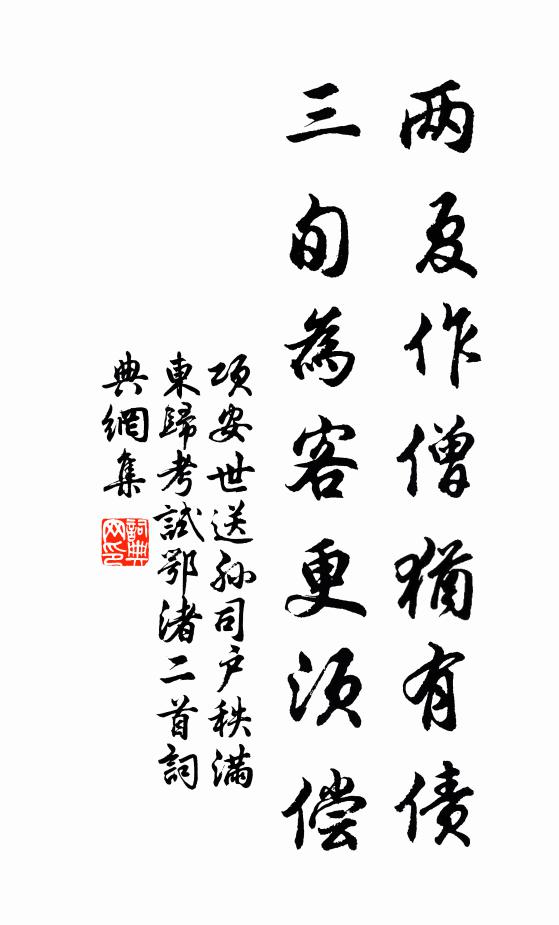 两夏作僧犹有债
三旬為客更须偿
项安世送孙司户秩滿
東歸考試鄂渚二首詞
典網集
詞典网印